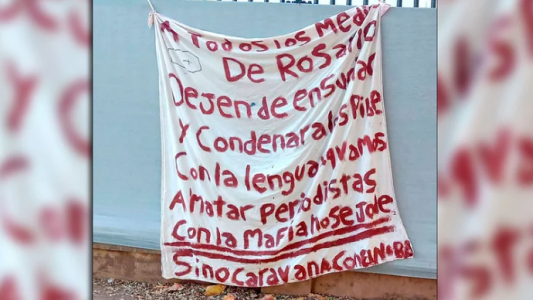 A Todos los Medios
De Rosario
Dejen de ensuciar
y Condenar a los Pibes
Con la lengua vamos
A matar periodistas
Con la Mafia no se Jode
Sino caravana